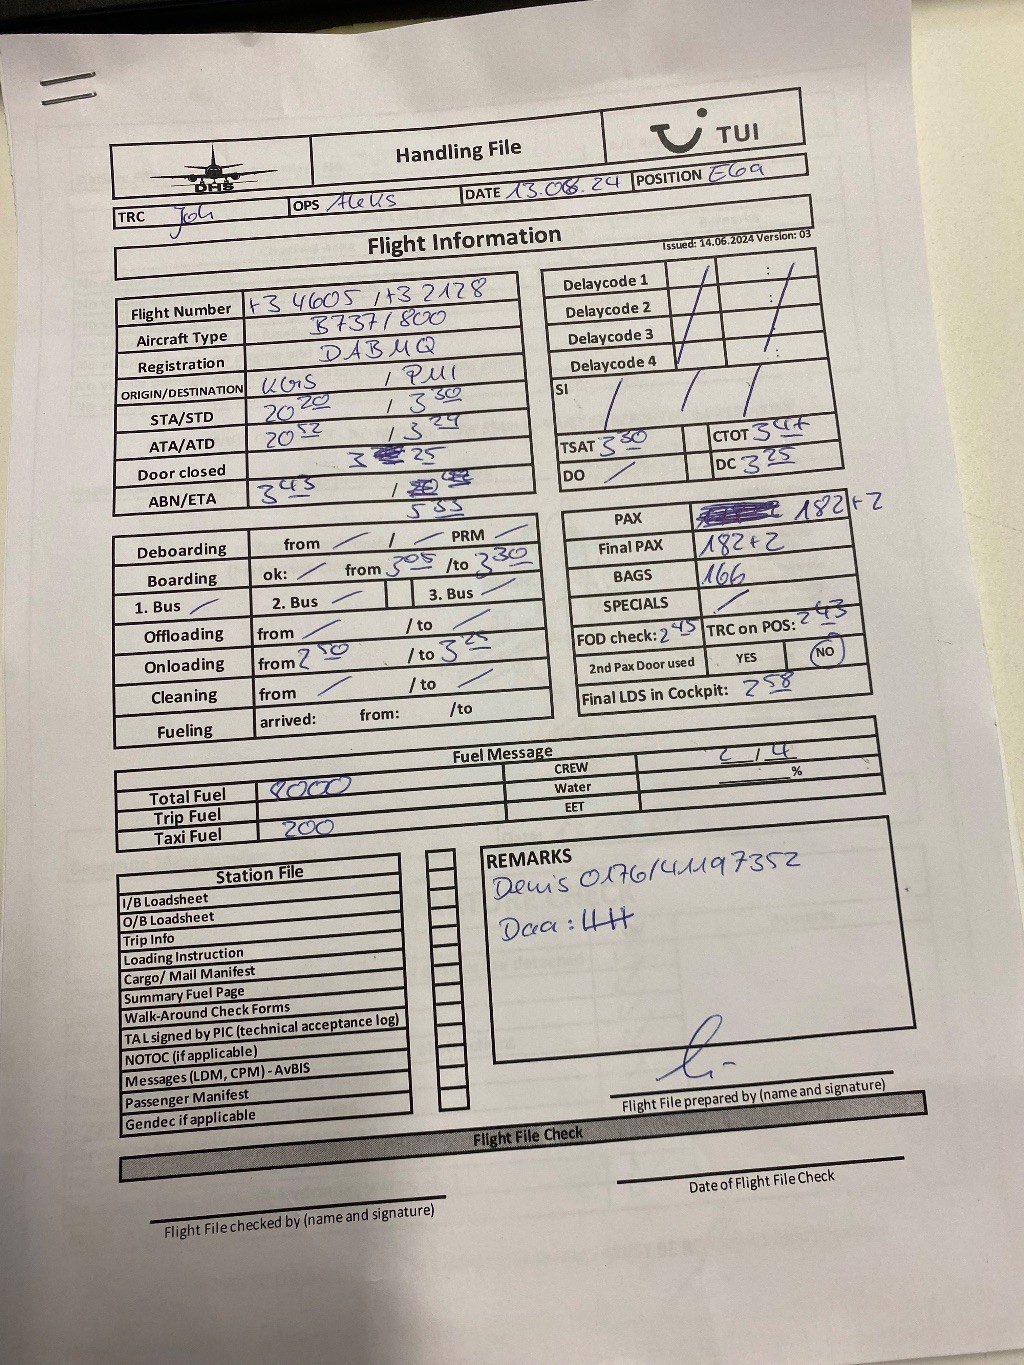 DHS
Handling File
TUI
TRC Joh OPS Aleks DATE 13.08.24 POSITION E69
Flight Information
Issued: 14.06.2024 Version: 03
Flight Number +3 4605 /+3 2128
Aircraft Type B737/800
Registration DABMQ
ORIGIN/DESTINATION KGS / PMI
STA/STD 20 20 / 3 30
ATA/ATD 20 52 / 3 29
Door closed 3 25
ABN/ETA 3 43 /
5 33
Delaycode 1 / : /
Delaycode 2 :
Delaycode 3
Delaycode 4 :
SI / / /
TSAT 3 30 CTOT 3 47
DO / DC 3 25
Deboarding from / / / PRM /
Boarding ok: / from 3 05 /to 3 30
1. Bus / 2. Bus / 3. Bus /
Offloading from / / to /
Onloading from 2 50 / to 3 25
Cleaning from / / to /
Fueling arrived: from: /to
PAX 182+2
Final PAX 182+2
BAGS 166
SPECIALS /
FOD check: 2 45 TRC on POS: 2 43
2nd Pax Door used YES NO
Final LDS in Cockpit: 2 58
Fuel Message
Total Fuel 8000 CREW 2 / 4
Trip Fuel Water %
Taxi Fuel 200 EET
Station File
I/B Loadsheet
O/B Loadsheet
Trip Info
Loading Instruction
Cargo/ Mail Manifest
Summary Fuel Page
Walk-Around Check Forms
TAL signed by PIC (technical acceptance log)
NOTOC (if applicable)
Messages (LDM, CPM) - AvBIS
Passenger Manifest
Gendec if applicable
REMARKS
Denis 0176/41197352
Daa:
Flight File prepared by (name and signature)
Flight File Check
Flight File checked by (name and signature)
Date of Flight File Check